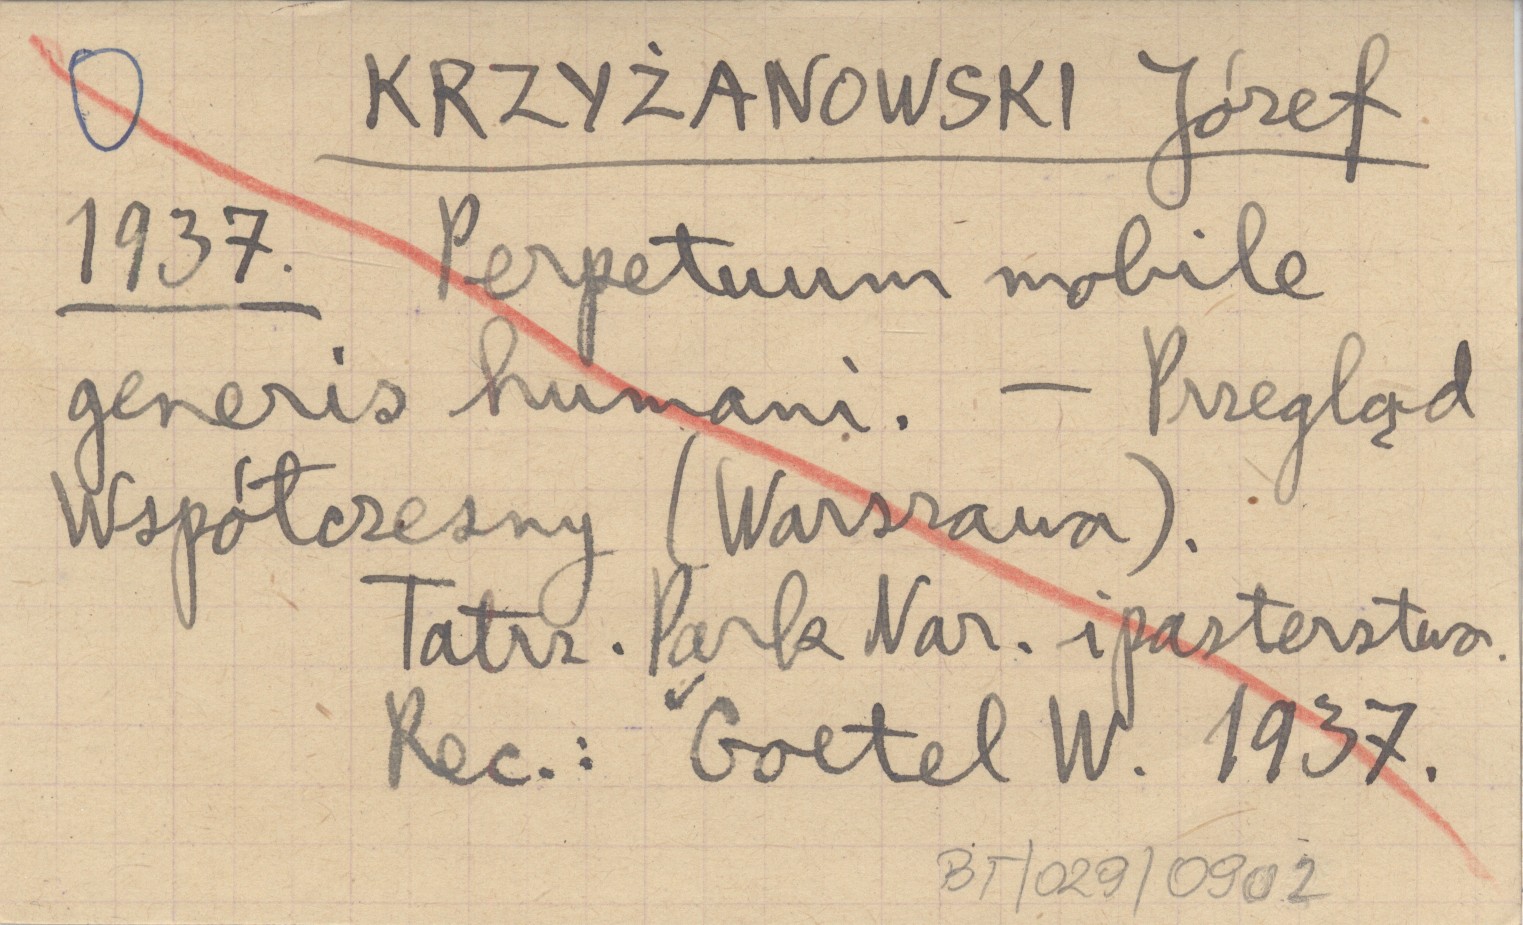 KRZYŻANOWSKI Józef
1937. Perpetuum mobile
generis humani. — Przegląd
Współczesny (Warszawa).
Tatrz. Park Nar. i pasterstwo.
Rec.: Goetel W. 1937.
BT/029/0902